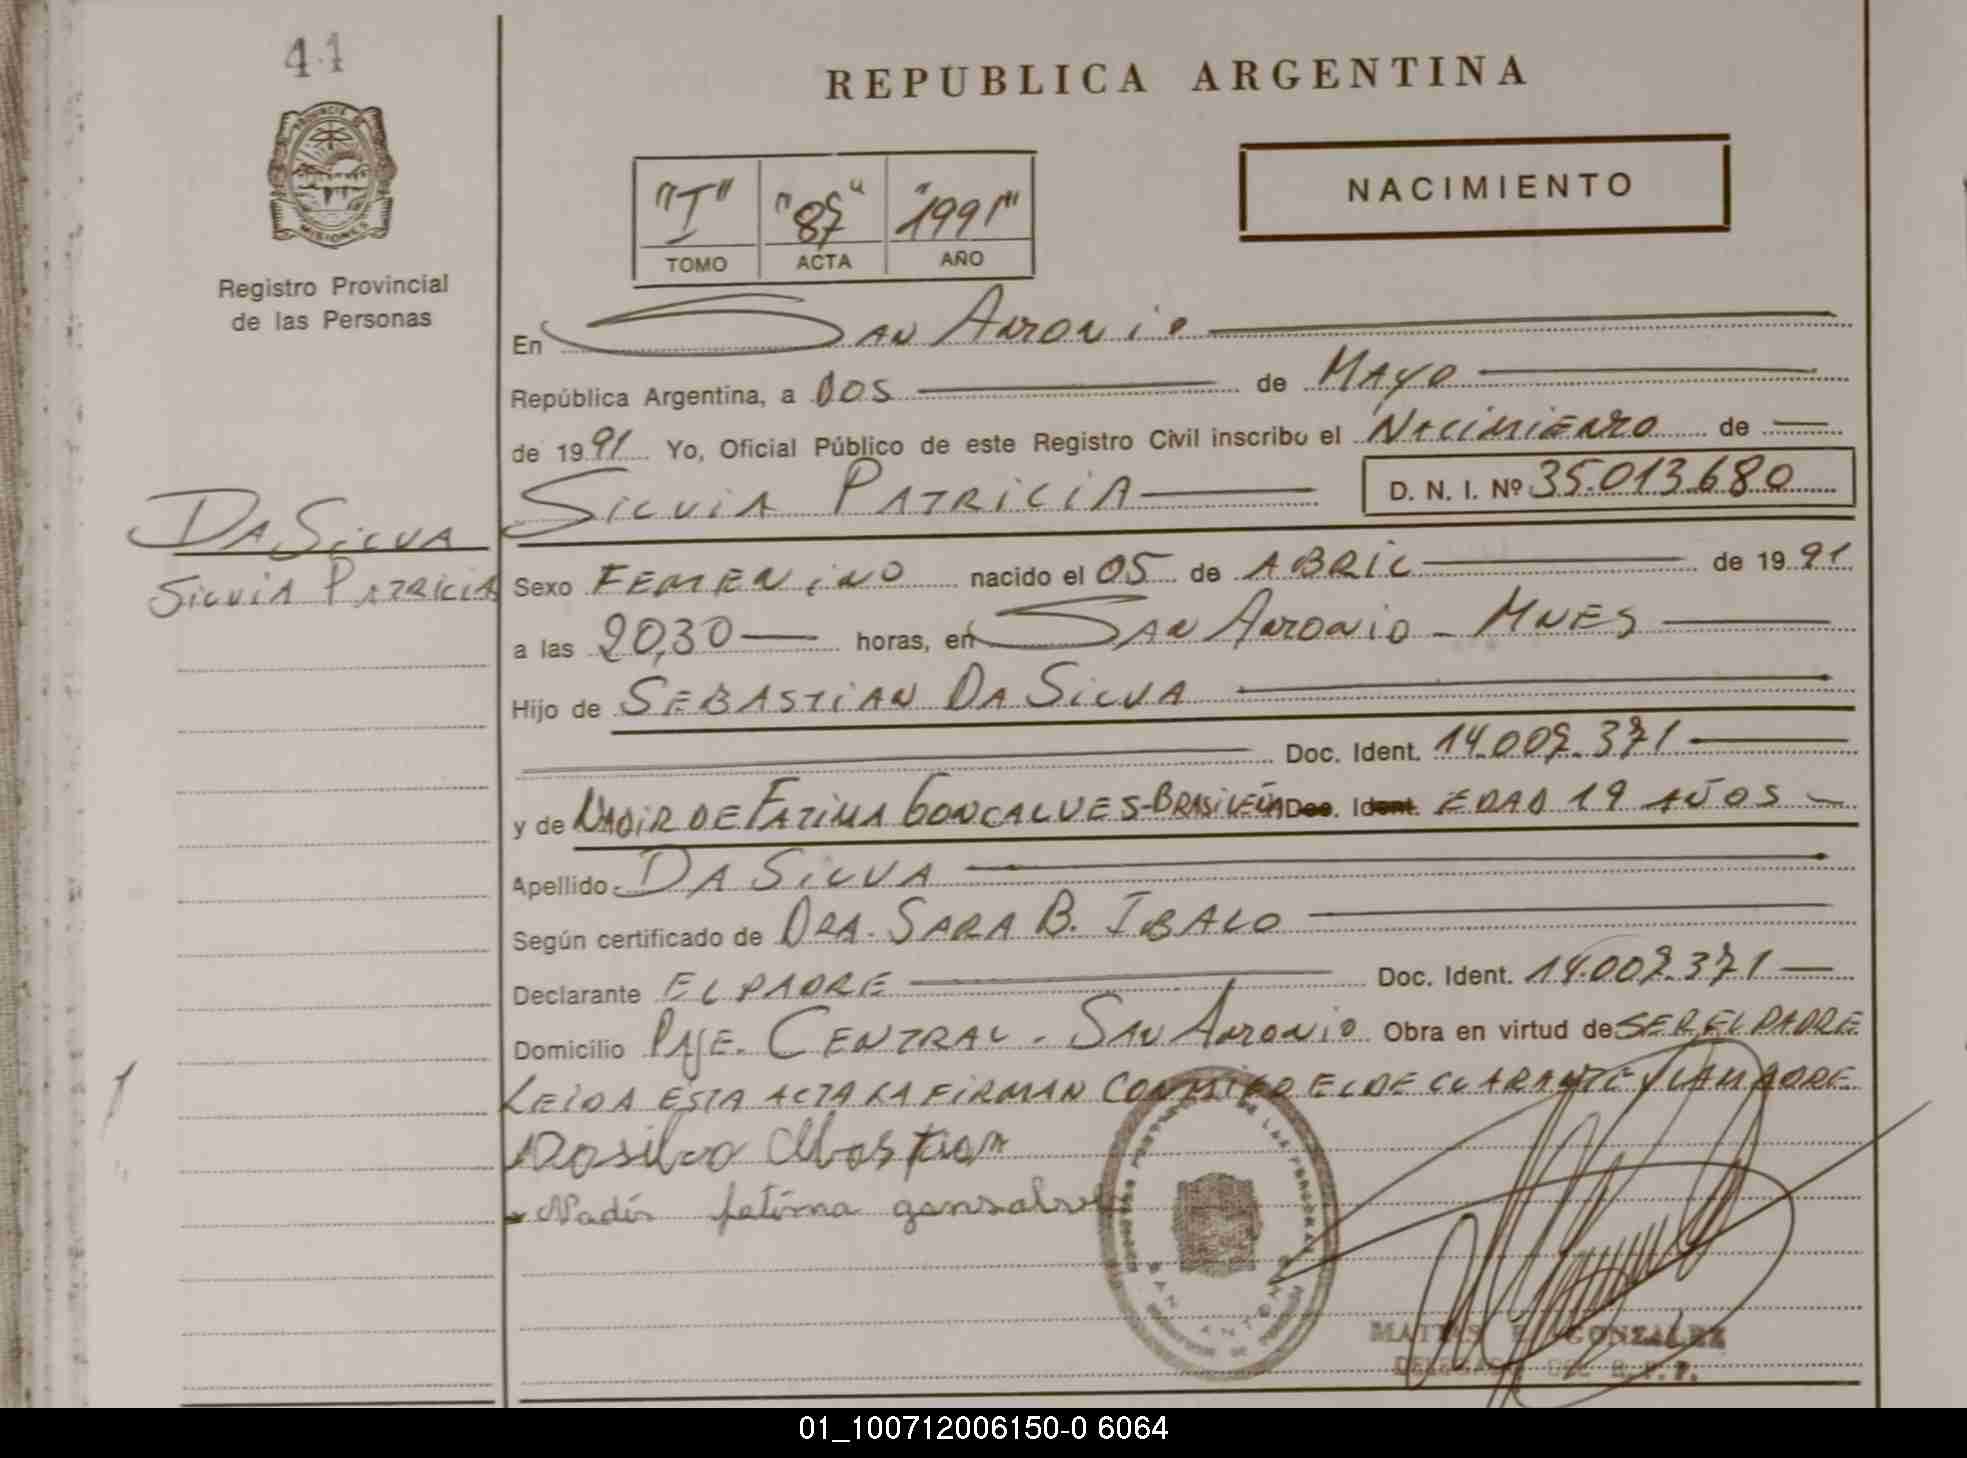 41
REPUBLICA ARGENTINA
NACIMIENTO
"I" "87" "1991"
TOMO ACTA AÑO
PROVINCIA DE
MISIONES
Registro Provincial
de las Personas
En SAN ANTONIO
República Argentina, a DOS de MAYO
de 1991 Yo, Oficial Público de este Registro Civil inscribo el NACIMIENTO de
SILVIA PATRICIA D. N. I. Nº 35.013.680
DA SILVA
SILVIA PATRICIA
Sexo FEMENINO nacido el 05 de ABRIL de 1991
a las 20,30 horas, en SAN ANTONIO - MNES
Hijo de SEBASTIAN DA SILVA
Doc. Ident. 14.007.371
y de NADIR DE FATIMA GONCALVES-BRASILEÑA Doc. Ident. EDAD 19 AÑOS
Apellido DA SILVA
Según certificado de DRA. SARA B. IBALO
Declarante EL PADRE Doc. Ident. 14.007.371
Domicilio PJE. CENTRAL - SAN ANTONIO Obra en virtud de SER EL PADRE
LEIDA ESTA ACTA LA FIRMAN CONMIGO EL DECLARANTE Y LA MADRE
Nadir fatima gonsalves
SAN ANTONIO
MATIAS GONZALEZ
01_100712006150-0 6064